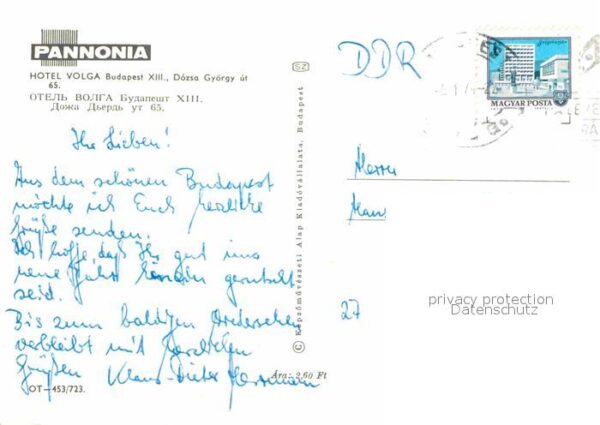 PANNONIA
HOTEL VOLGA Budapest XIII., Dózsa György út
65.
ОТЕЛЬ ВОЛГА Будапешт XIII.
Дожа Дьердь ут 65.
Ihr Lieben!
Aus dem schönen Budapest
möchte ich Euch herzliche
Grüße senden.
Ich hoffe, daß Ihr gut ins
neue Jahr hinein gerutscht
seid.
Bis zum baldigen Wiedersehen
verbleibt mit herzlichen
Grüßen Klaus-Dieter Herrmann
OT—453/723.
Ára: 2,60 Ft
© Képzőművészeti Alap Kiadóvállalata, Budapest
SZ
DDR
MAGYAR POSTA
Herrn
27
privacy protection
Datenschutz